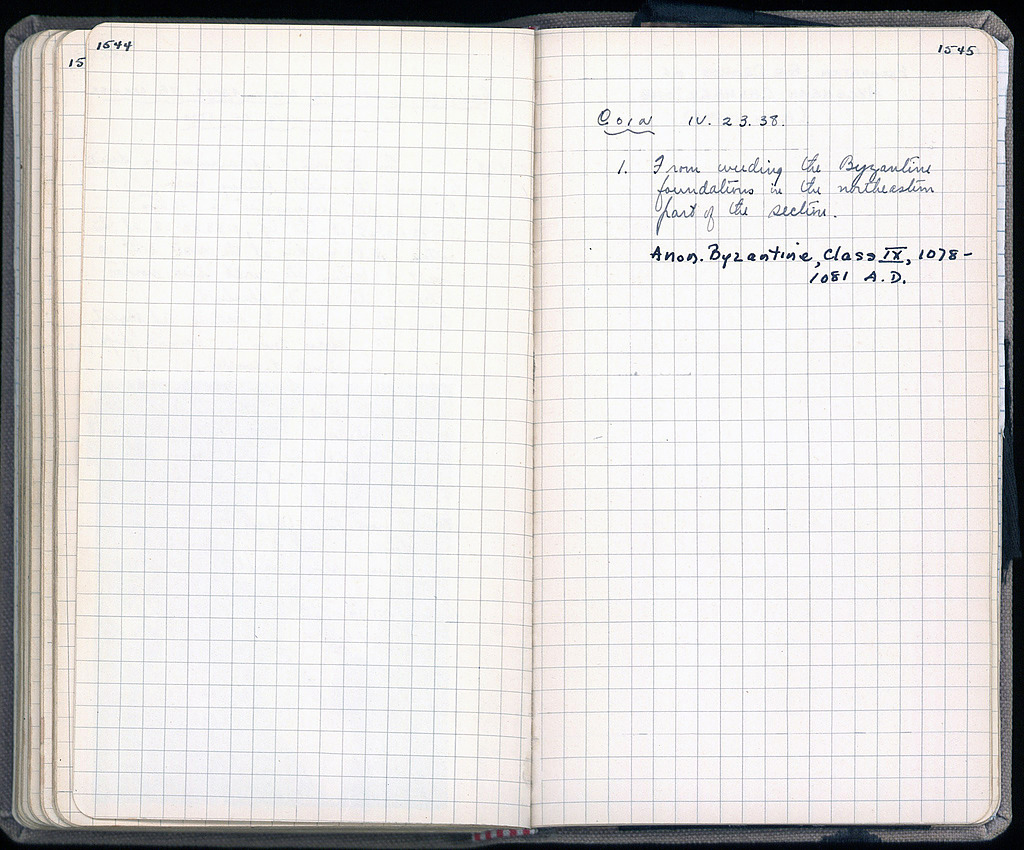 1544
15
1545
Coin IV. 23. 38.
1. From weeding the Byzantine
foundations in the northeastern
part of the section.
Anon. Byzantine, Class IX, 1078-
1081 A.D.